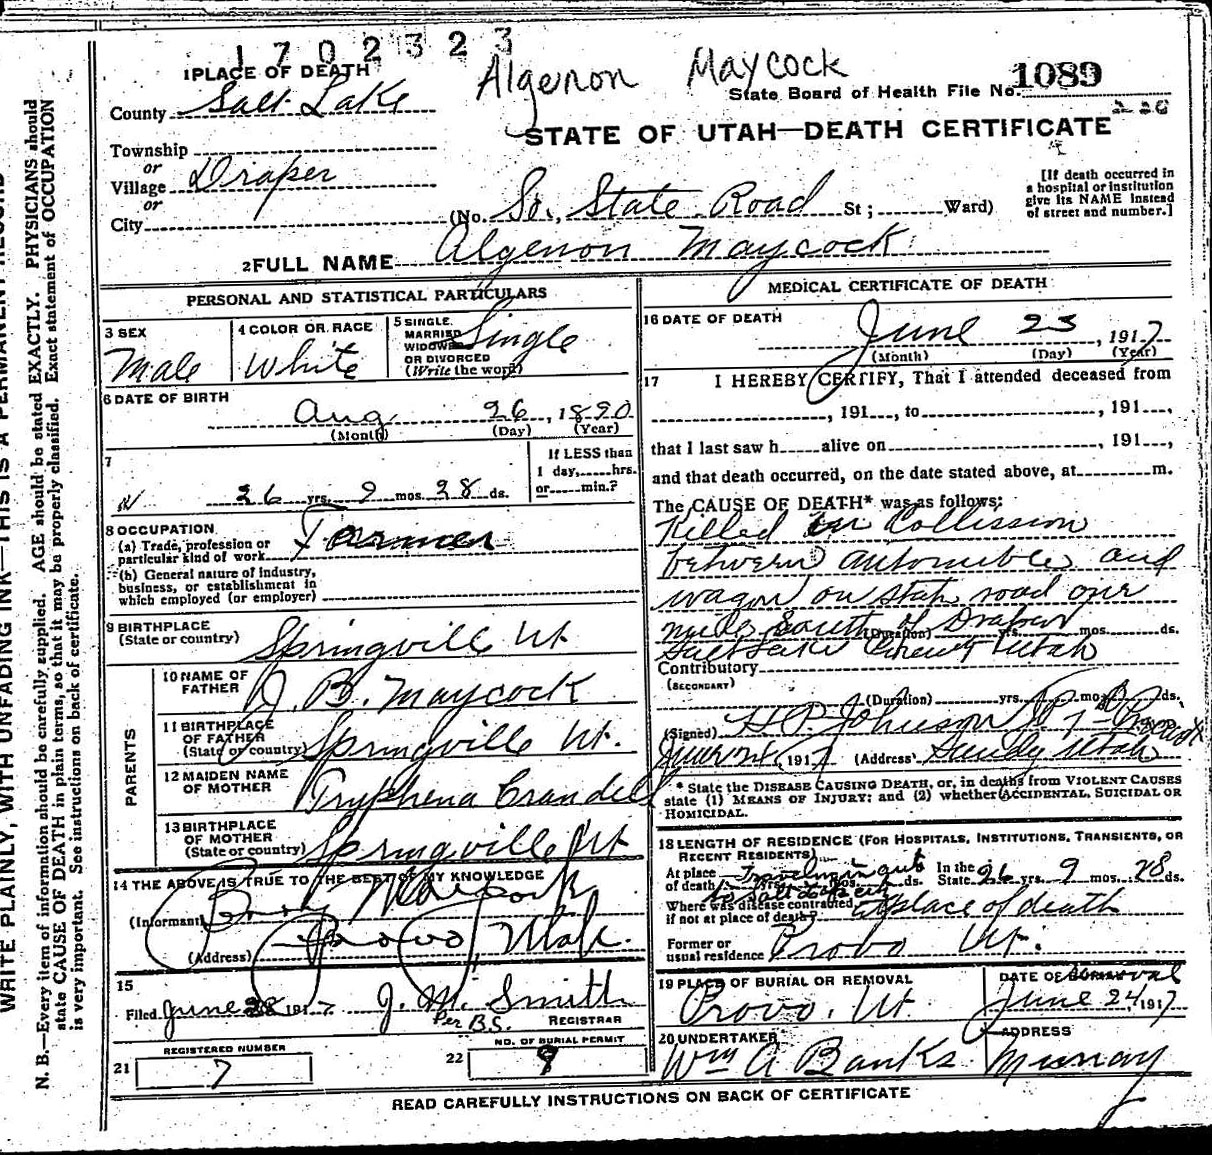 1702323
1 PLACE OF DEATH
Algenon Maycock
State Board of Health File No. 1089
County Salt Lake
STATE OF UTAH—DEATH CERTIFICATE
Township
or
Village Draper
or
City
(No. So. State Road St; Ward)
[If death occurred in
a hospital or institution
give its NAME instead
of street and number.]
2 FULL NAME Algenon Maycock
PERSONAL AND STATISTICAL PARTICULARS
3 SEX
Male
4 COLOR OR RACE
White
5 SINGLE
MARRIED
WIDOWED
OR DIVORCED
(Write the word)
Single
6 DATE OF BIRTH
Aug 26, 1890
(Month) (Day) (Year)
7
26 yrs. 9 mos. 28 ds.
If LESS than
1 day, hrs.
or min.?
8 OCCUPATION
(a) Trade, profession or
particular kind of work Farmer
(b) General nature of industry,
business, or establishment in
which employed (or employer)
9 BIRTHPLACE
(State or country) Springville Ut
PARENTS
10 NAME OF
FATHER J. B. Maycock
11 BIRTHPLACE
OF FATHER
(State or country) Springville Ut.
12 MAIDEN NAME
OF MOTHER Tryphena Crandell
13 BIRTHPLACE
OF MOTHER
(State or country) Springville Ut
14 THE ABOVE IS TRUE TO THE BEST OF MY KNOWLEDGE
(Informant) Maycock
(Address) Provo, Utah.
15
Filed June 28 1917 J. M. Smith
Per B.S. REGISTRAR
REGISTERED NUMBER
21 7
NO. OF BURIAL PERMIT
22 9
MEDICAL CERTIFICATE OF DEATH
16 DATE OF DEATH
June 23, 1917
(Month) (Day) (Year)
17 I HEREBY CERTIFY, That I attended deceased from
, 191 , to , 191 ,
that I last saw h alive on , 191 ,
and that death occurred, on the date stated above, at m.
The CAUSE OF DEATH* was as follows:
Killed in Collission
between automible and
wagon on state road one
mile South of Draper
(Duration) yrs. mos. ds.
Salt Lake County Utah
Contributory
(SECONDARY)
(Duration) yrs. mos. ds.
(Signed) H. P. Johnson
, 1917 (Address) Sandy Utah
* State the DISEASE CAUSING DEATH, or, in deaths from VIOLENT CAUSES
state (1) MEANS OF INJURY; and (2) whether ACCIDENTAL, SUICIDAL OR
HOMICIDAL.
18 LENGTH OF RESIDENCE (FOR HOSPITALS, INSTITUTIONS, TRANSIENTS, OR
RECENT RESIDENTS)
At place
of death yrs. mos. ds. In the
State 26 yrs. 9 mos. 28 ds.
Where was disease contracted,
if not at place of death? at place of death
Former or
usual residence Provo Ut.
19 PLACE OF BURIAL OR REMOVAL
Provo, Ut
DATE OF Removal
June 24, 1917
20 UNDERTAKER
Wm A Banks
ADDRESS
Murray
READ CAREFULLY INSTRUCTIONS ON BACK OF CERTIFICATE
WRITE PLAINLY, WITH UNFADING INK—THIS IS A PERMANENT RECORD
N. B.—Every item of information should be carefully supplied. AGE should be stated EXACTLY. PHYSICIANS should
state CAUSE OF DEATH in plain terms, so that it may be properly classified. Exact statement of OCCUPATION
is very important. See instructions on back of certificate.